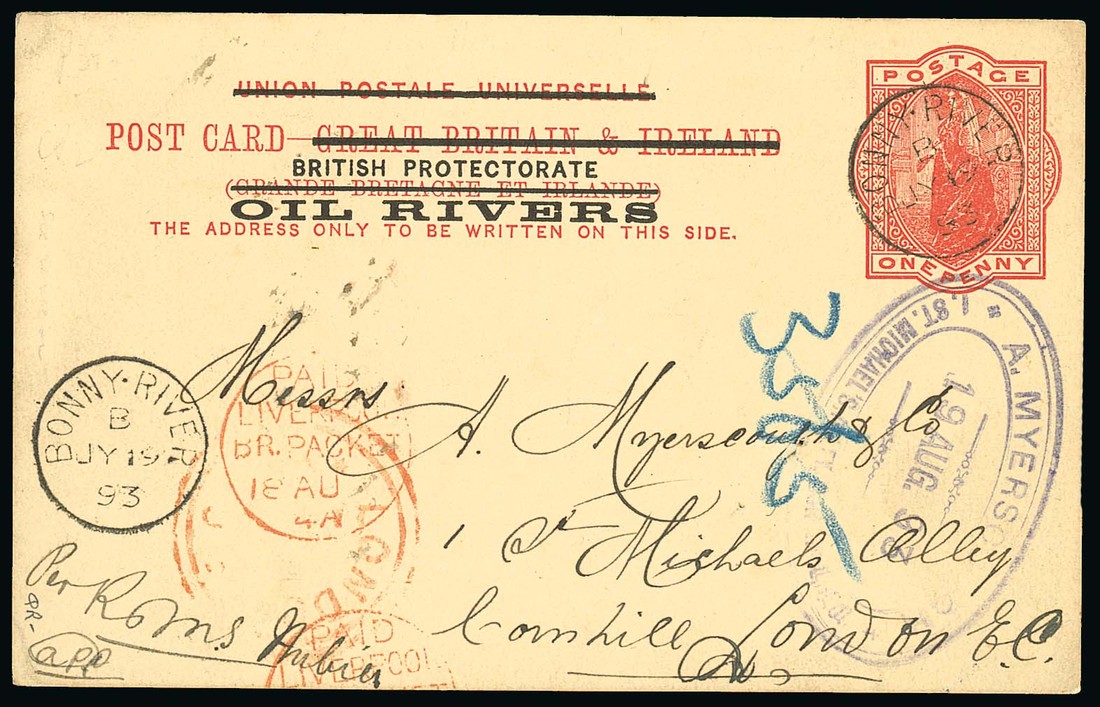 UNION POSTALE UNIVERSELLE
POST CARD—GREAT BRITAIN & IRELAND
BRITISH PROTECTORATE
(GRANDE BRETAGNE ET IRLANDE)
OIL RIVERS
THE ADDRESS ONLY TO BE WRITTEN ON THIS SIDE.
POSTAGE
ONE PENNY
BONNY·RIVER
B
JY 19
93
BONNY·RIVER
B
JY 19
93
PAID
LIVERPOOL
BR. PACKET
18 AU
4A
LOND
PAID
LIVERPOOL
Messrs
A. Myerscough & Co
1 St Michaels Alley
Cornhill London E.C.
Per R.M.S Nubia
A. MYERS
1, ST. MICHAEL'S
19 AUG. 93